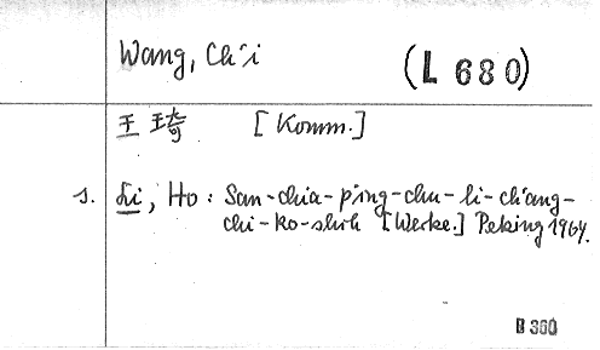 Wang, Ch'i
(L 680)
王琦 [Komm.]
s. Li, Ho: San-chia-p'ing-chu-li-ch'ang-
chi-ko-shih [Werke.] Peking 1964.
B 360